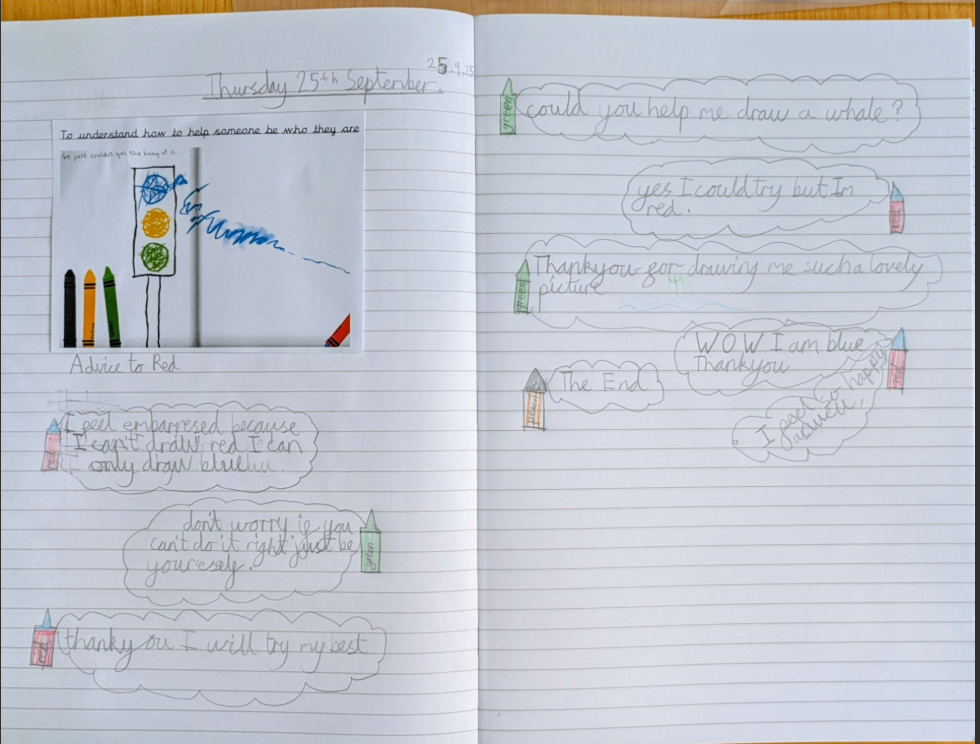 25.9.25
Thursday 25th September.
To understand how to help someone be who they are
he just couldn't get the hang of it.
Advice to Red
red
I feel embarresed because
I can't draw red I can
only draw blue
don't worry if you
can't do it right just be
yourself.
green
red
thankyou I will try my best
green
could you help me draw a whale?
yes I could try but Im
red.
red
Thankyou for drawing me such a lovely
picture
green
WOW I am blue
Thankyou
red
I feel so happy
The End